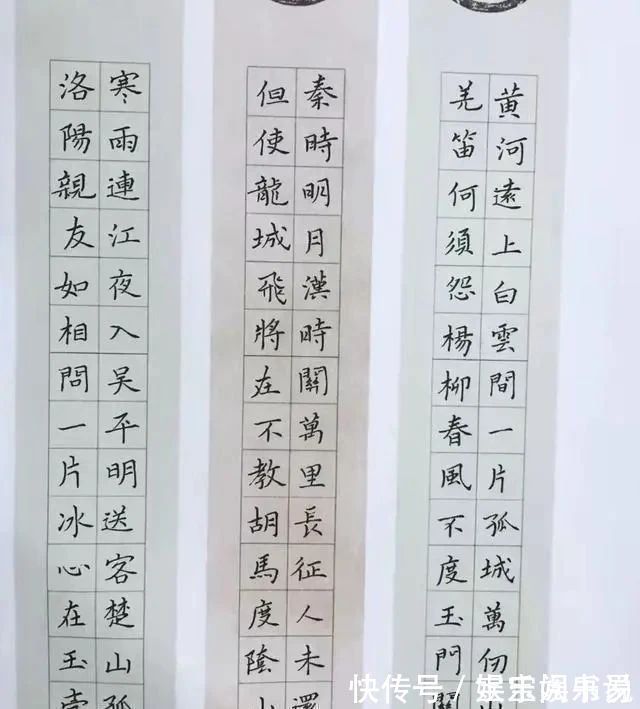 黄河遠上白雲間一片孤城萬仞
羌笛何須怨楊柳春風不度玉門關
秦時明月漢時關萬里長征人未還
但使龍城飛將在不教胡馬度陰山
寒雨連江夜入吳平明送客楚山孤
洛陽親友如相問一片冰心在玉
快传号 /